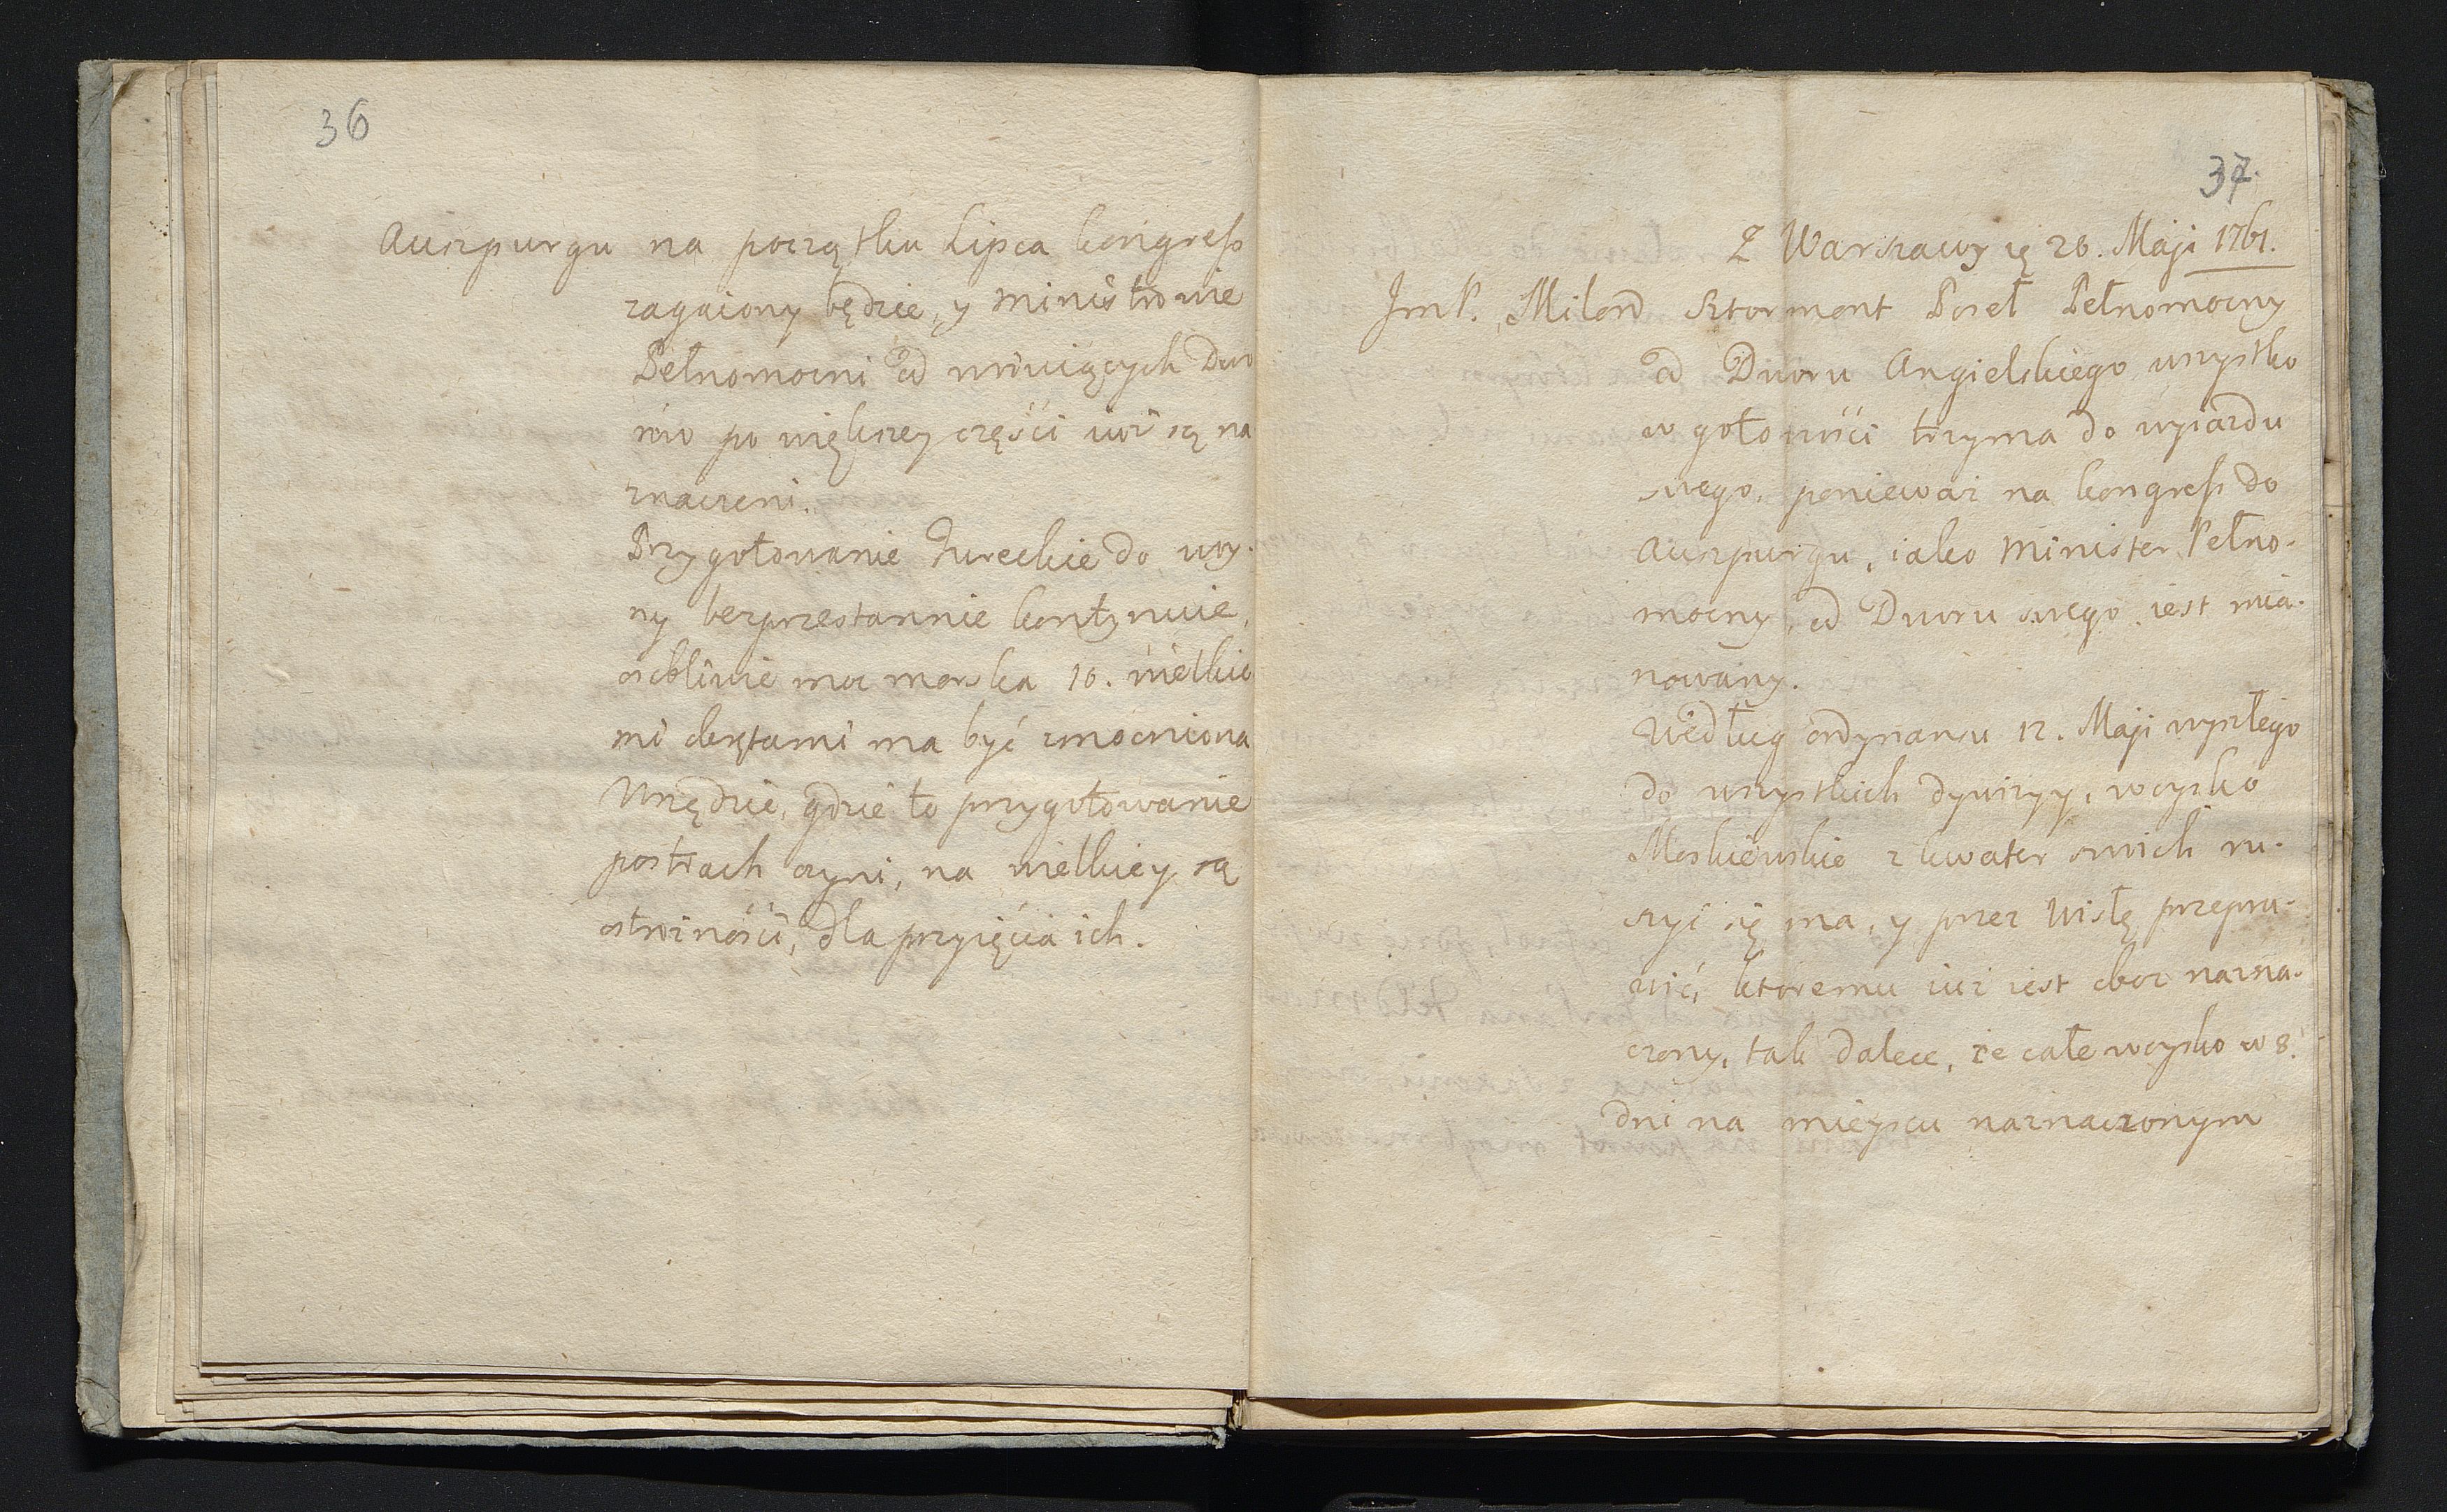 36
Auszpurgu na początku Lipca kongreſs
zagaiony będzie, y ministrowie
Pełnomocni od woiuiących Dwo
rów po większey części iuż są na
znaczeni.
Przygotowanie Tureckie do woy.
ny bezprzestannie kontynuie,
osobliwie moc morska 10. wielkie
mi okrętami ma być zmocniona
Wszędzie, gdzie to przygotowanie
postrach czyni, na wielkiey są
ostrożności, dla przyięcia ich.
37.
Z Warszawy 28. Maji 1761.
JmP. Milord Sztormont Poseł Pełnomocny
od Dworu Angielskiego wszystko
w gotowości trzyma do wyiazdu
swego, ponieważ na kongreſs do
Auszpurgu, iako Minister Pełno-
mocny, od Dworu swego iest mia-
nowany.
Według ordynansu 12. Maji wyszłego
do wszystkich dywizyy, woysko
Moskiewskie z kwater swoich ru-
szyć się ma, y przez Wisłę przepra-
wić, ktoremu iuż iest oboz nazna-
czony, tak dalece, że całe woysko w 8.
dni na mieyscu naznaczonym